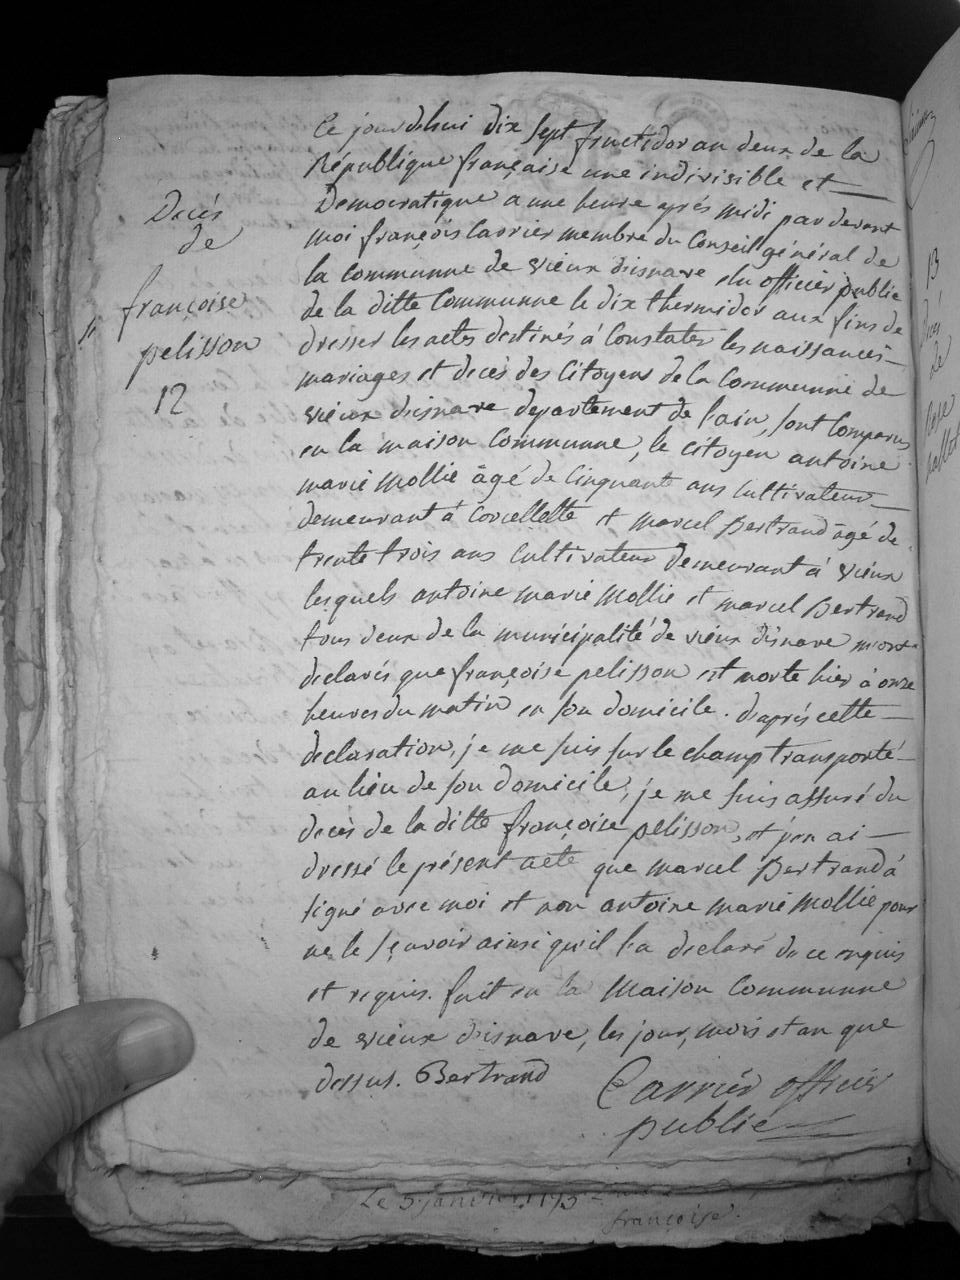 Décès
de
françoise
pelisson
12
Ce jourd'hui dix sept fructidor an deux de la
République française une indivisible et
Democratique a une heure après midi par devant
moi françois Carrier membre du Conseil général de
la Communne de vieux disnave elu officier public
de la ditte Communne le dix thermidor aux fins de
dresser les actes destinés à Constater les naissances
mariages et décès des Citoyens de la Communne de
vieux disnave departement de l'ain, sont Comparus
en la maison Communne, le Citoyen antoine
marie Mollie âgé de Cinquante ans Cultivateur
demeurant à Corcellette et marcel Bertrand âgé de
trente trois ans Cultivateur demeurant à vieux
lesquels antoine marie Mollie et marcel Bertrand
tous deux de la municipalité de vieux disnave m'ont
declarés que françoise pelisson est morte hier à onze
heures du matin en son domicile. d'après cette
declaration, je me suis sur le champ transporté
au lieu de son domicile, je me suis assuré du
décès de la ditte françoise pelisson, et j'en ai
dressé le présent acte que marcel Bertrand à
signé avec moi et non antoine marie Mollie pour
ne le sçavoir ainsi qu'il l'a declaré de ce enquis
et requis. fait en la Maison Communne
de vieux disnave, les jour, mois et an que
dessus. Bertrand
Carrier officier
public
Le 5 janvier
françoise
13
de